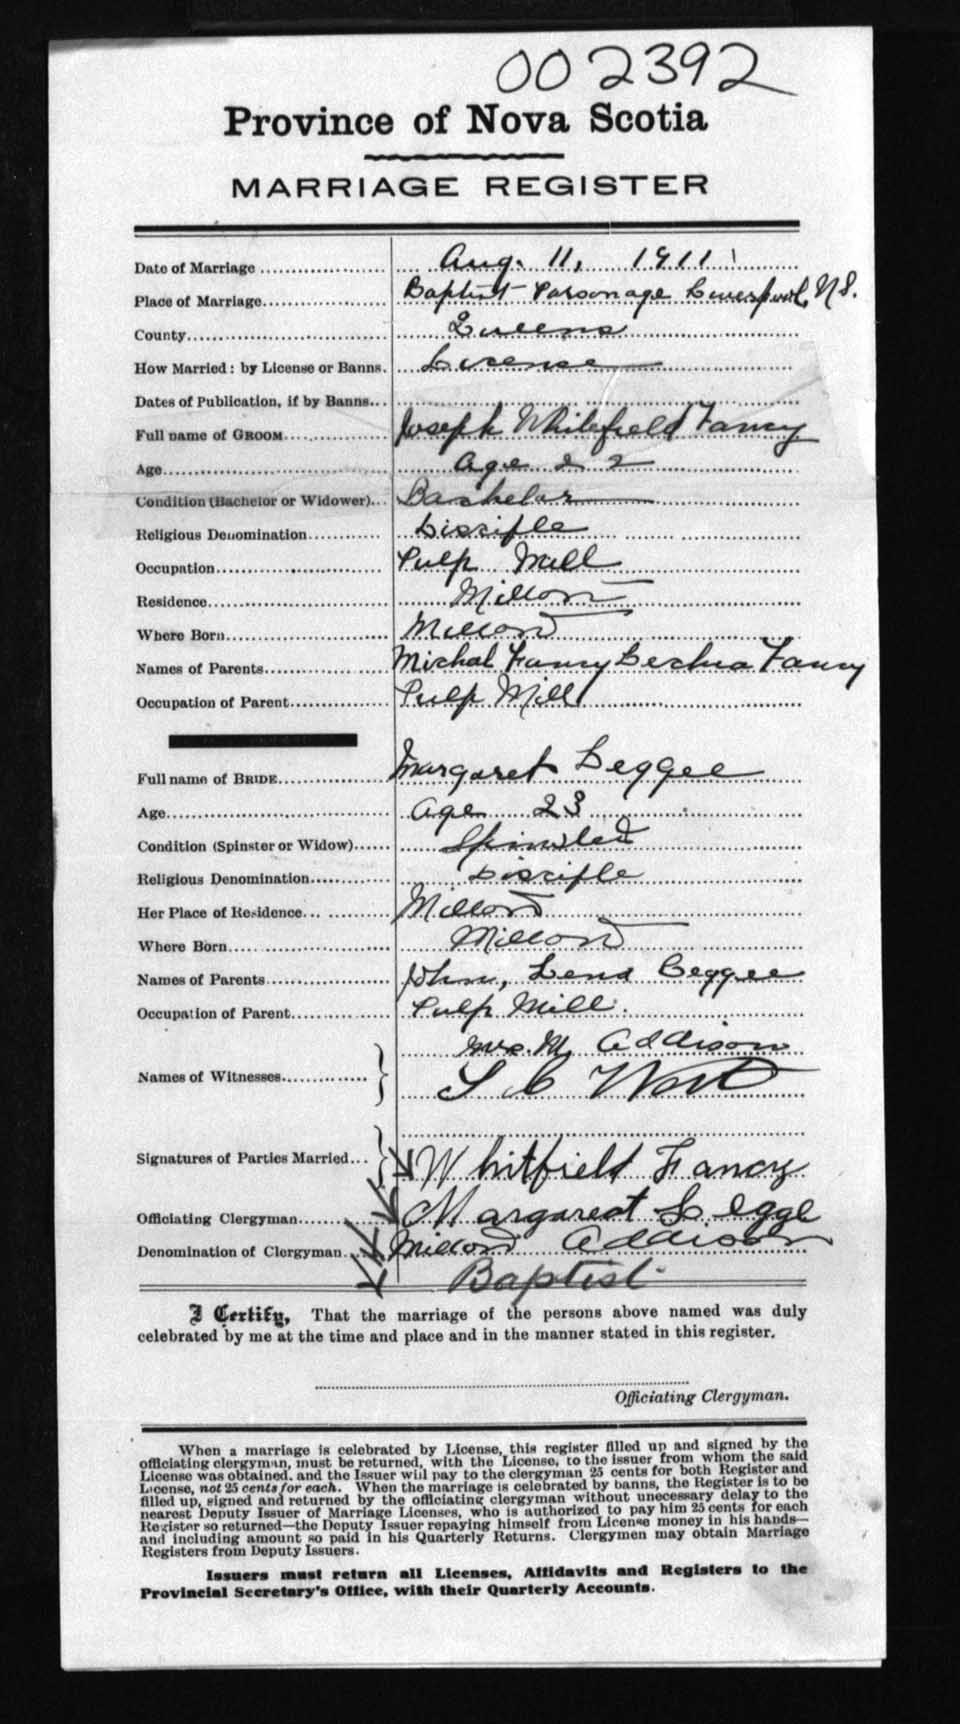 002392
Province of Nova Scotia
MARRIAGE REGISTER
Date of Marriage Aug. 11, 1911
Place of Marriage Baptist Parsonage Liverpool, N.S.
County Queens
How Married: by License or Banns. License
Dates of Publication, if by Banns
Full name of GROOM Joseph Whitefield Fancy
Age Age 22
Condition (Bachelor or Widower) Bachelor
Religious Denomination Disciple
Occupation Pulp Mill
Residence Milton
Where Born Milton
Names of Parents Michal Fancy Fancy
Occupation of Parent Pulp Mill
Full name of BRIDE Margaret Leggee
Age Age 23
Condition (Spinster or Widow) Spinster
Religious Denomination Disciple
Her Place of Residence Milton
Where Born Milton
Names of Parents John, Lena Leggee
Occupation of Parent Pulp Mill.
Mrs. M. Addison
Names of Witnesses
Signatures of Parties Married Whitfield Fancy
Officiating Clergyman Margaret Legge
Denomination of Clergyman Milton Addison
Baptist
I Certify, That the marriage of the persons above named was duly
celebrated by me at the time and place and in the manner stated in this register.
Officiating Clergyman.
When a marriage is celebrated by License, this register filled up and signed by the
officiating clergyman, must be returned, with the License, to the issuer from whom the said
License was obtained, and the Issuer will pay to the clergyman 25 cents for both Register and
License, not 25 cents for each. When the marriage is celebrated by banns, the Register is to be
filled up, signed and returned by the officiating clergyman without unecessary delay to the
nearest Deputy Issuer of Marriage Licenses, who is authorized to pay him 25 cents for each
Register so returned—the Deputy Issuer repaying himself from License money in his hands—
and including amount so paid in his Quarterly Returns. Clergymen may obtain Marriage
Registers from Deputy Issuers.
Issuers must return all Licenses, Affidavits and Registers to the
Provincial Secretary's Office, with their Quarterly Accounts.